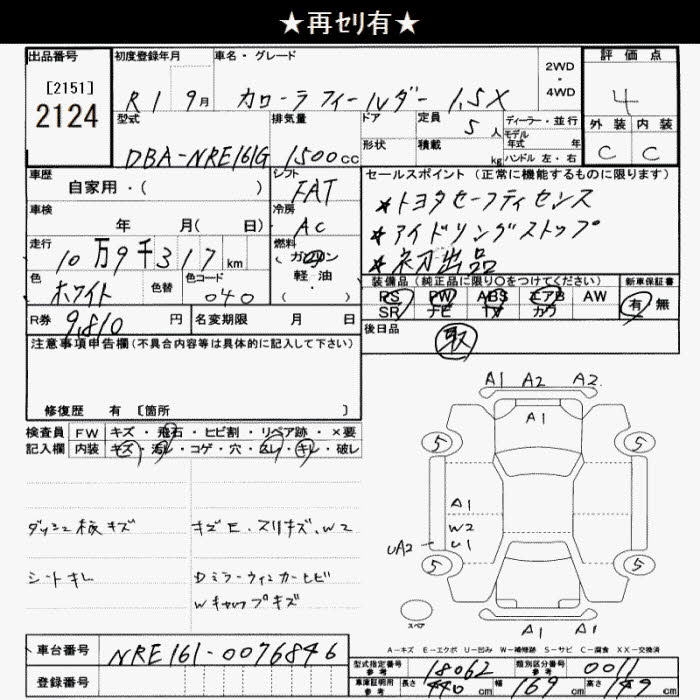 ★再ｾﾘ有★
出品番号 初度登録年月 車名・グレード 2WD・4WD 評価点
[2151]
2124
R1 9月 カローラフィールダー 1.5X 4
型式 排気量 ドア 定員 5人 ディーラー・並行 外装 内装
モデル年式 年
DBA-NRE161G 1500cc 形状 積載 kg ハンドル 左・右 C C
車歴 シフト セールスポイント (正常に機能するものに限ります)
自家用・( ) FAT
★トヨタセーフティセンス
車検 冷房
年 月( 日) AC
★アイドリングストップ
走行 燃料
10万9千317km ガソリン
軽・油・
( )
★初出品
色 色替 色コード 装備品 (純正品に限り○をつけてください) 新車保証書
ホワイト 040 PS PW ABS エアB AW 有 無
SR ナビ TV カワ
R券 9,810円 名変期限 月 日 後日品
取
注意事項申告欄(不具合内容等は具体的に記入して下さい)
修復歴 有 〔箇所 〕
検査員 FW キズ・飛石・ヒビ割・リペア跡・×要
記入欄 内装 キズ・汚レ・コゲ・穴・スレ・キレ・破レ
A1 A2 A2
A1
5 5
A1
W2
UA2 U1
5 5
スペア
A1 A1
ダッシュ板キズ キズE・スリキズ、W2
シートキレ Dミラーウィンカーヒビ
Wキャップキズ
A-キズ E-エクボ U-凹み W-補修跡 S-サビ C-腐食 XX-交換済
車台番号 NRE161-0076846
登録番号
型式指定番号 参考 18062 類別区分番号 参考 0011
車庫証明用 参考 長さ 440cm 幅 169cm 高さ cm